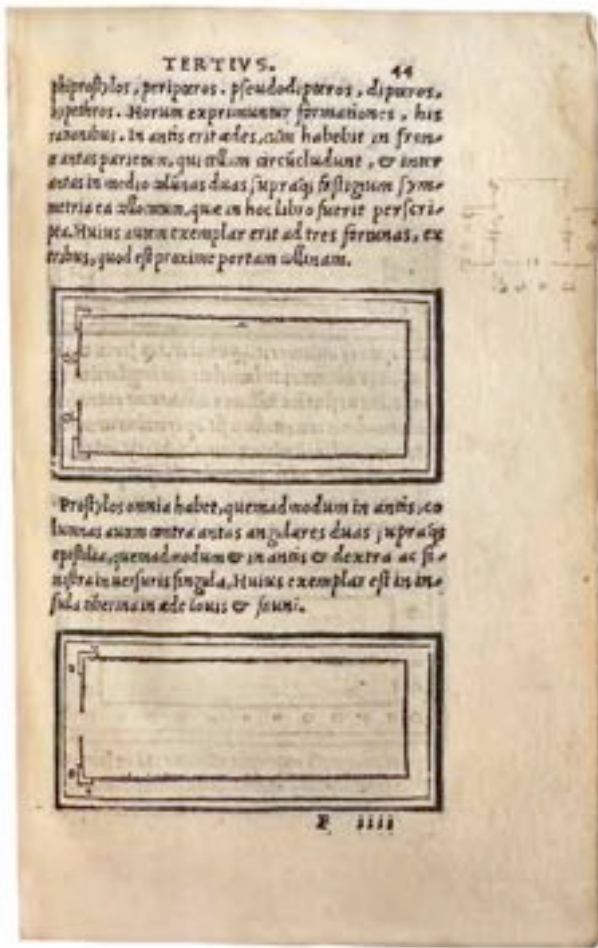 TERTIVS. 44
phiprostylos, peripteros. pseudodipteros, dipteros,
hypethros. Horum exprimuntur formationes, his
rationibus. In antis erit ædes, cũm habebit in fron-
te antas parietum, qui cellam circũcludunt, & inter
antas in medio colũnas duas supraq́; fastigium sym-
metria ea collocatum, quæ in hoc libro fuerit perscri-
pta. Huius autem exemplar erit ad tres fortunas, ex
tribus, quod est proxime portam collinam.
Prostylos omnia habet, quemadmodum in antis, co
lumnas autem contra antas angulares duas supraq́;
epistilia, quemadmodum & in antis & dextra ac si-
nistra in uersuris singula, Huius exemplar est in in-
sula tiberina in æde Iouis & fauni.
F iiii